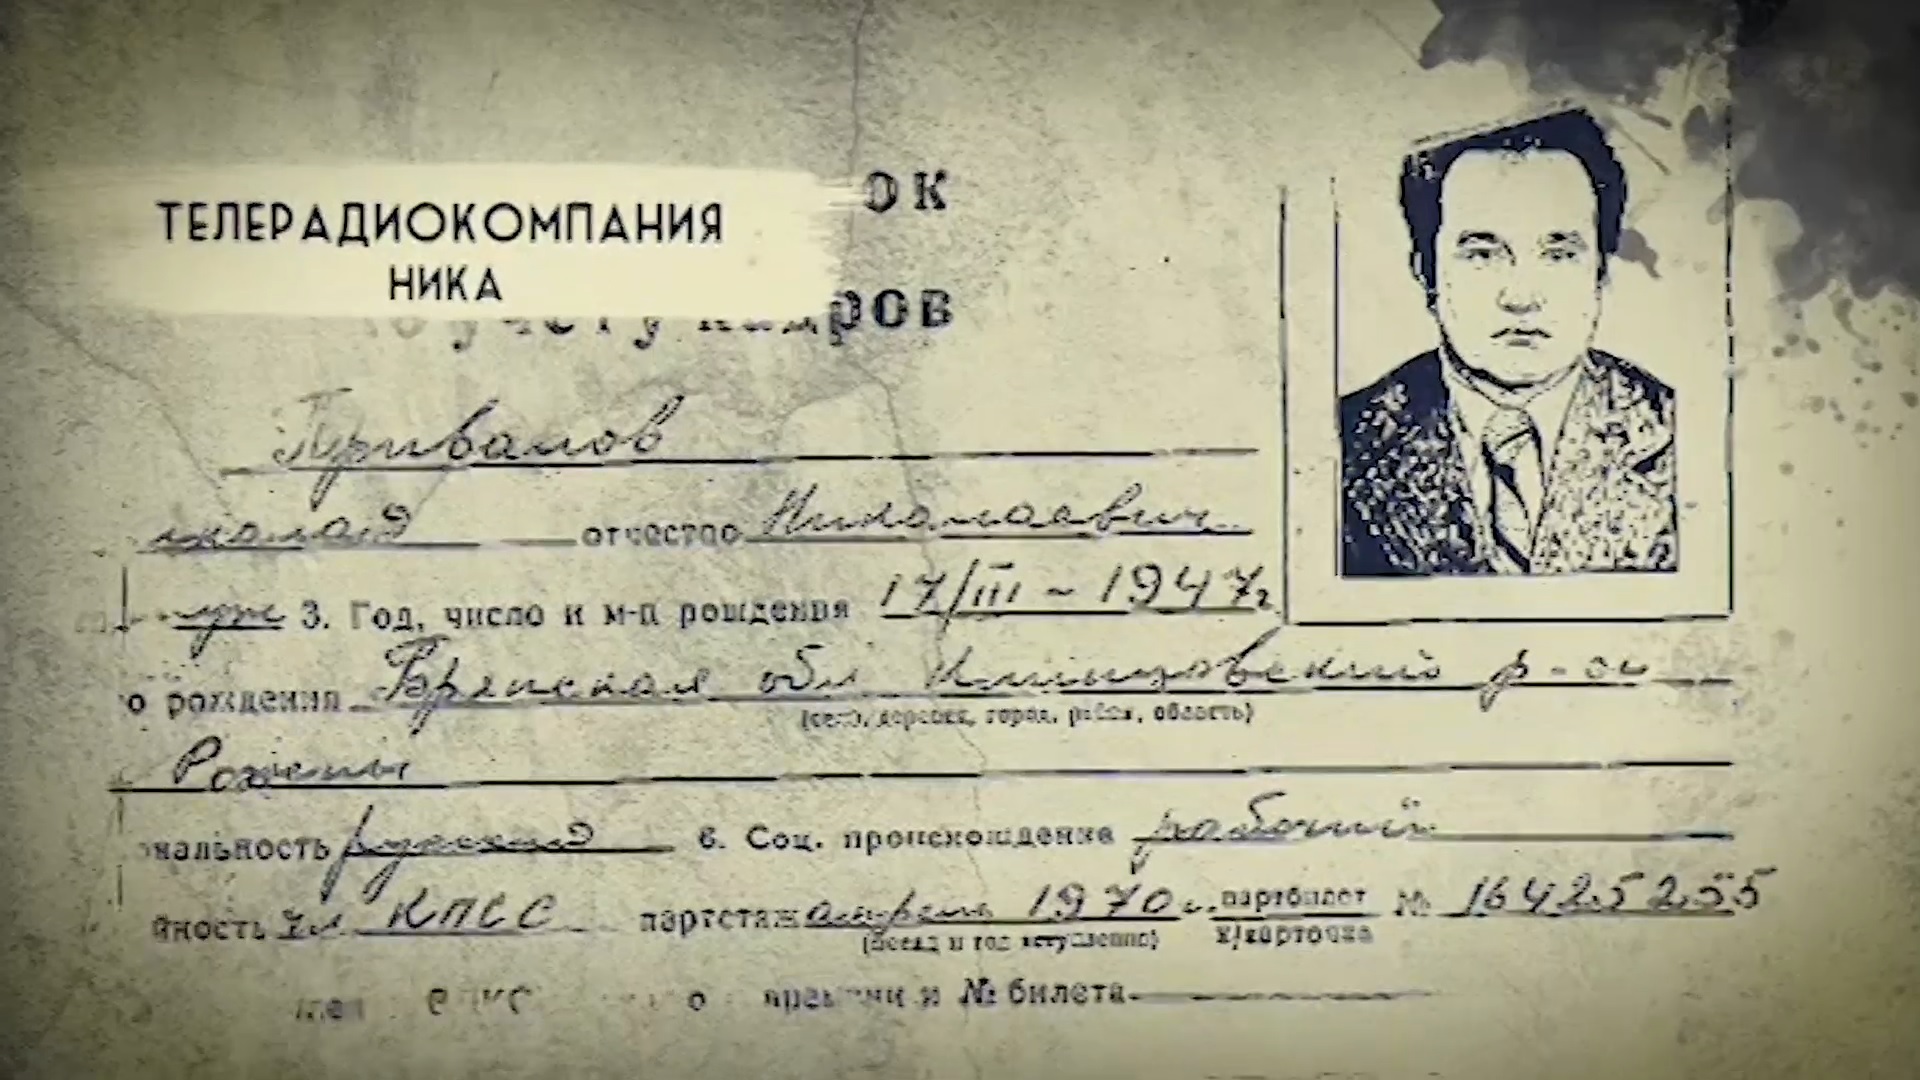 ТЕЛЕРАДИОКОМПАНИЯ
НИКА
ОК
по учету кадров
Туриванов
иколай отчество Николаевич
муж 3. Год, число и м-ц рождения 17/III - 1947г
о рождения Брянская обл Клинцовский р-он
(село, деревня, город, район, область)
Рожены
нальность русский 6. Соц. происхождение рабочий
йность чл КПСС партстаж апрель 1970 г. партбилет № 16425255
(месяц и год вступления) к/карточка
времени и № билета